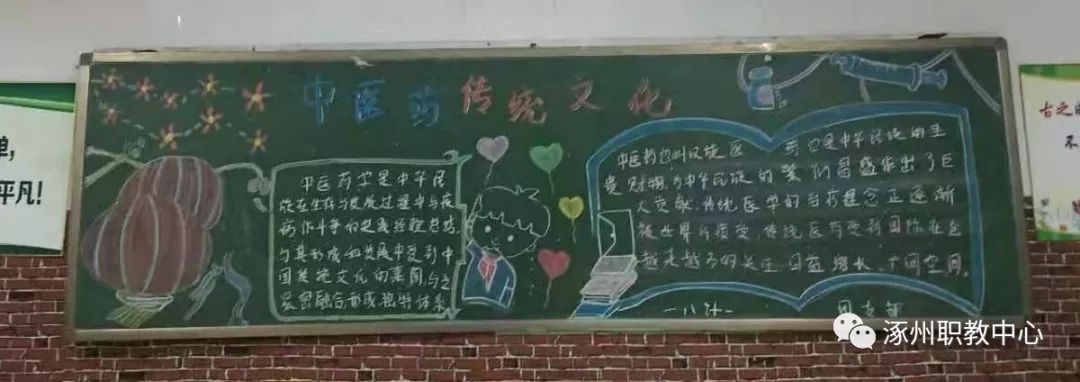 单,
平凡!
中医药传统文化
中医药学是中华民
族在生存与发展过程中与疾
病作斗争的实践经验总结,
与其形成和发展中受到中
国传统文化的熏陶,与之
紧密融合而成独特体系
中医药也叫汉族医药也是中华民族的宝
贵财物,为中华民族的繁衍昌盛作出了巨
大贡献,传统医学的治疗理念正逐渐
被世界所接受,传统医药受到国际社会
越来越多的关注,日益增长,
空间。
团支部
古之
不
涿州职教中心